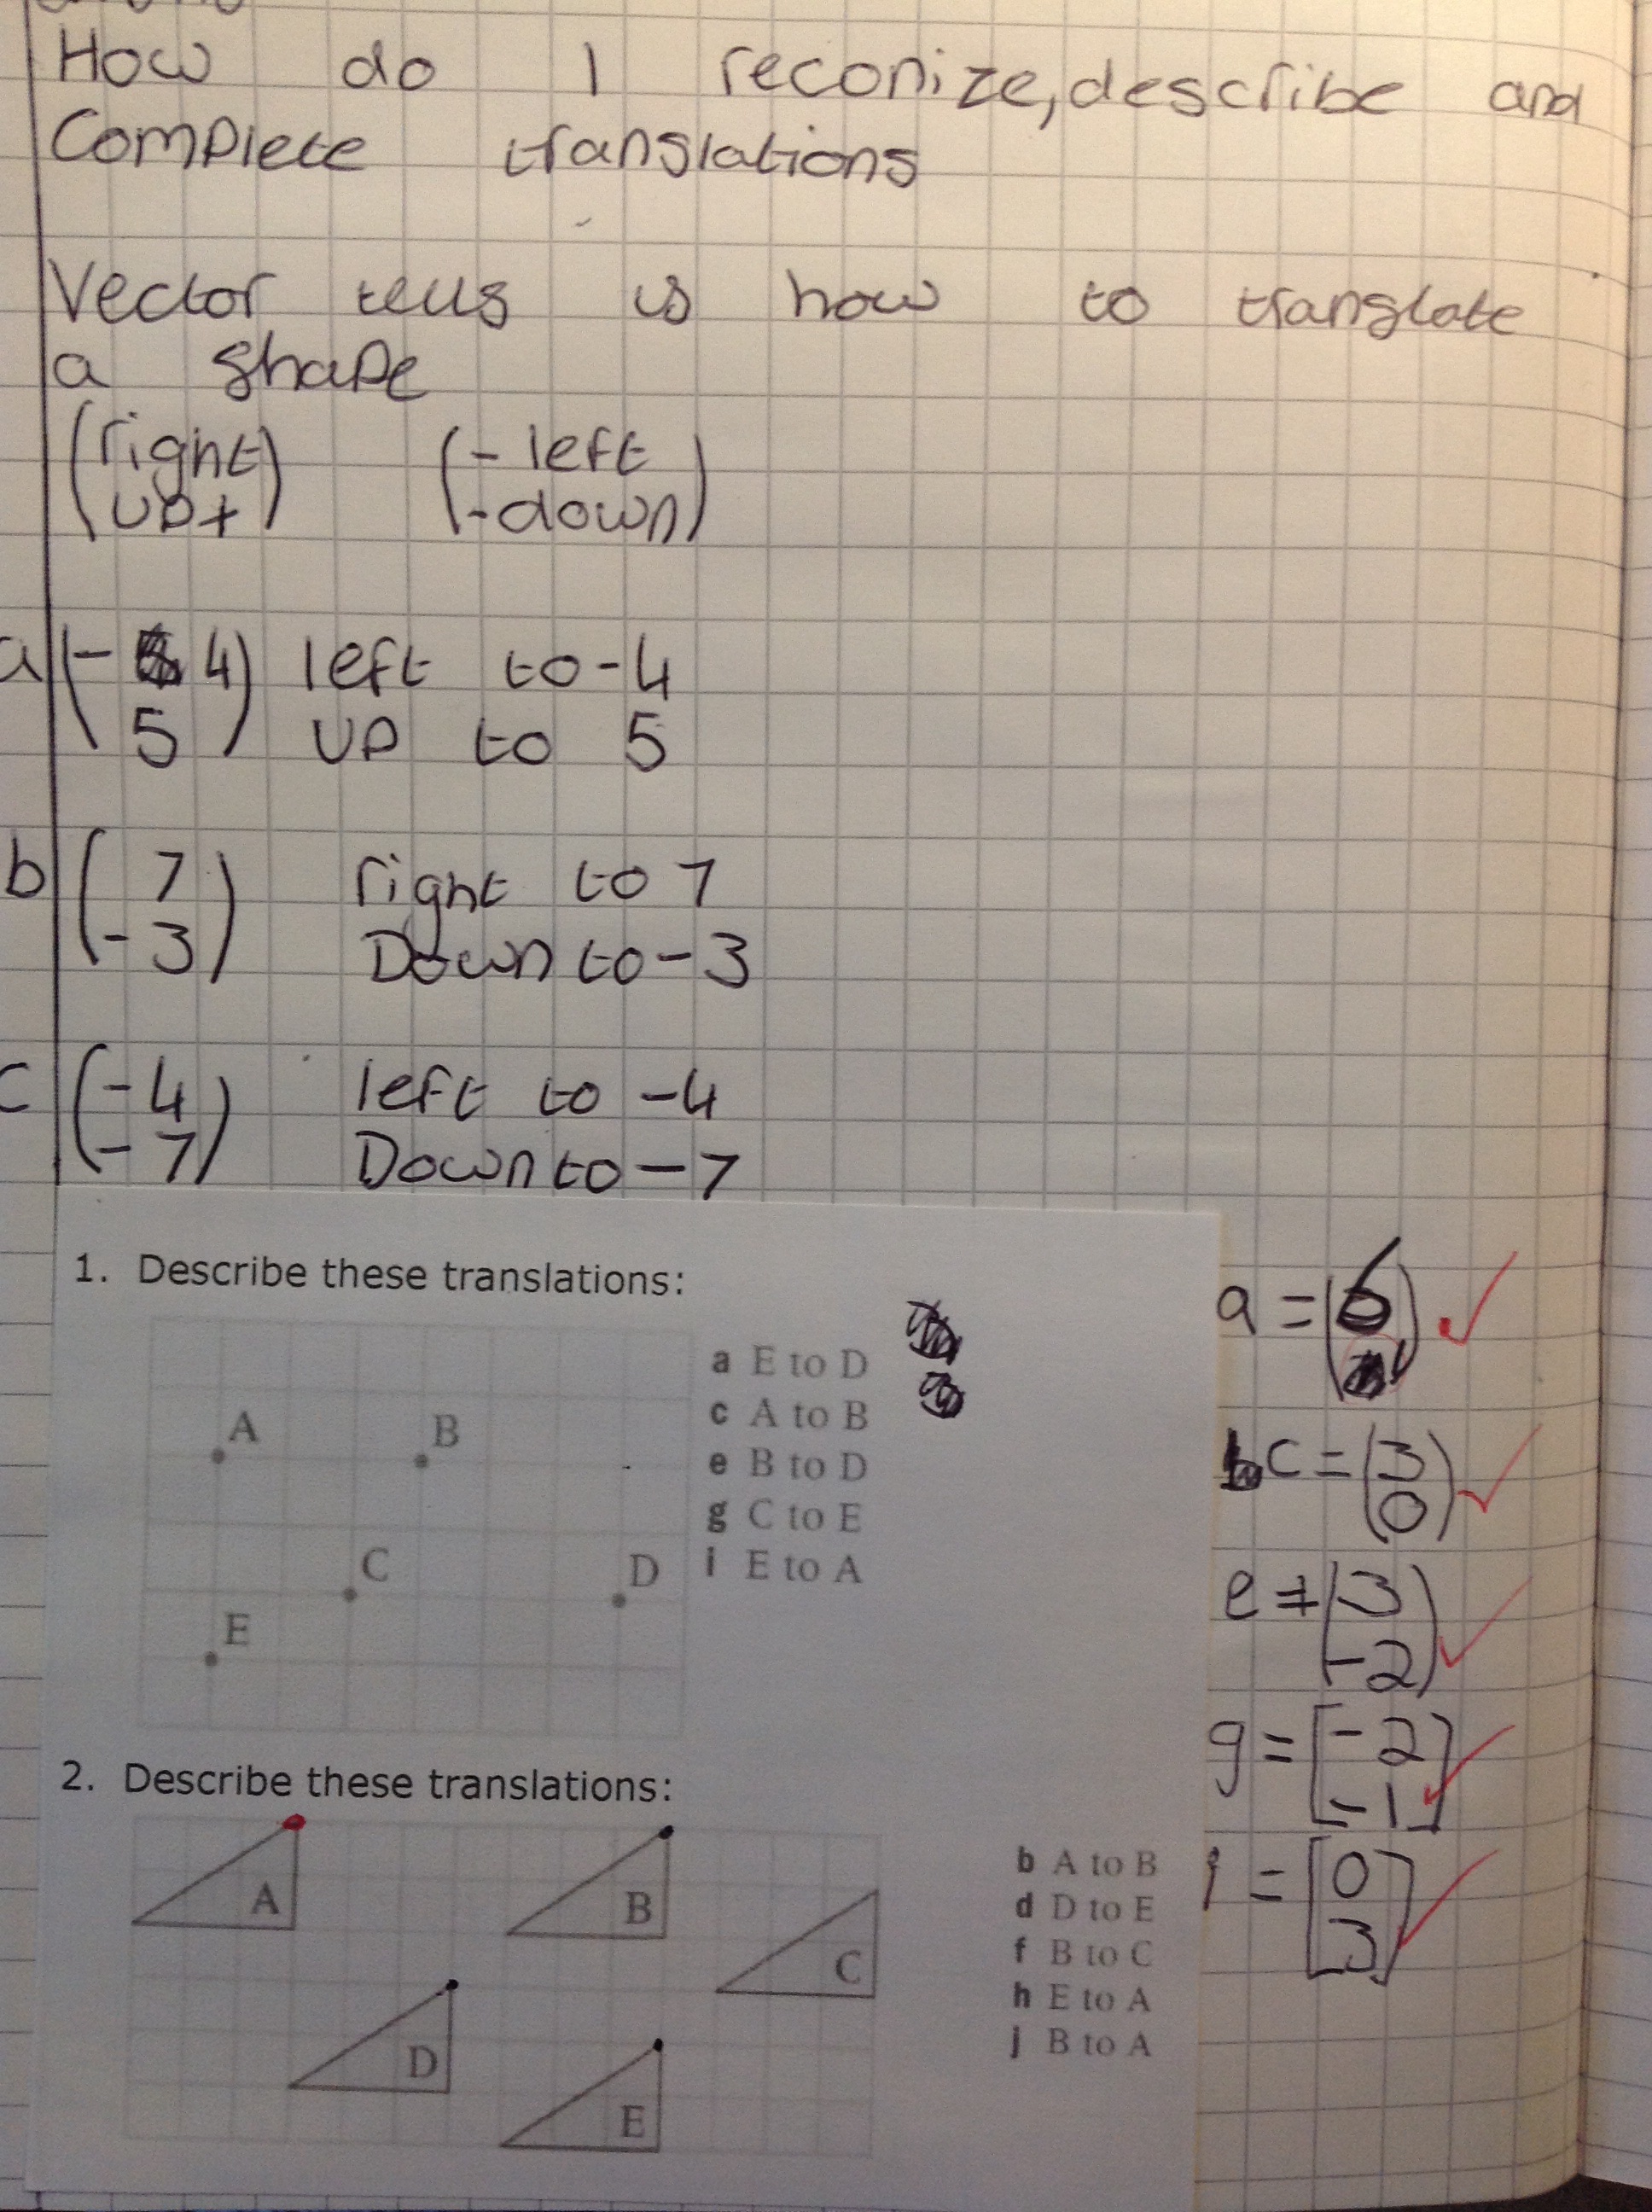 How do I reconize, describe and
Complete translations
Vector tells us how to translate
a shape
(right) (- left
(up+) (-down)
a (-4) left to -4
5 up to 5
b (7) right to 7
-3 Down to -3
c (-4) left to -4
-7 Down to -7
1. Describe these translations:
a E to D
c A to B
e B to D
g C to E
i E to A
A B
C D
E
a = (6
c = (3
0)
e = (3
-2)
g = [-2
-1]
i = [0
3]
2. Describe these translations:
A B C
D E
b A to B
d D to E
f B to C
h E to A
j B to A